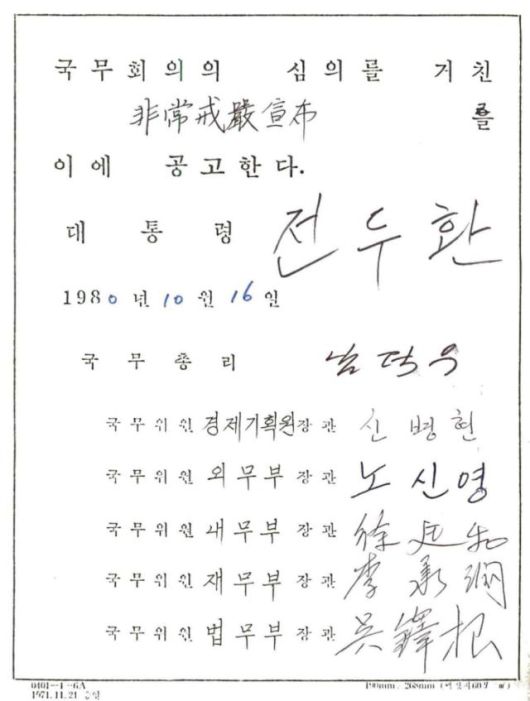 국무회의의 심의를 거친
非常戒嚴宣布 를
이에 공고한다.
대통령 전두환
1980년 10월 16일
국무총리 남덕우
국무위원 경제기획원장관 신병현
국무위원 외무부장관 노신영
국무위원 내무부장관 徐廷和
국무위원 재무부장관 李承潤
국무위원 법무부장관 吳鐸根
0401-1-6A
1971.11.21 승인
190mm × 268mm